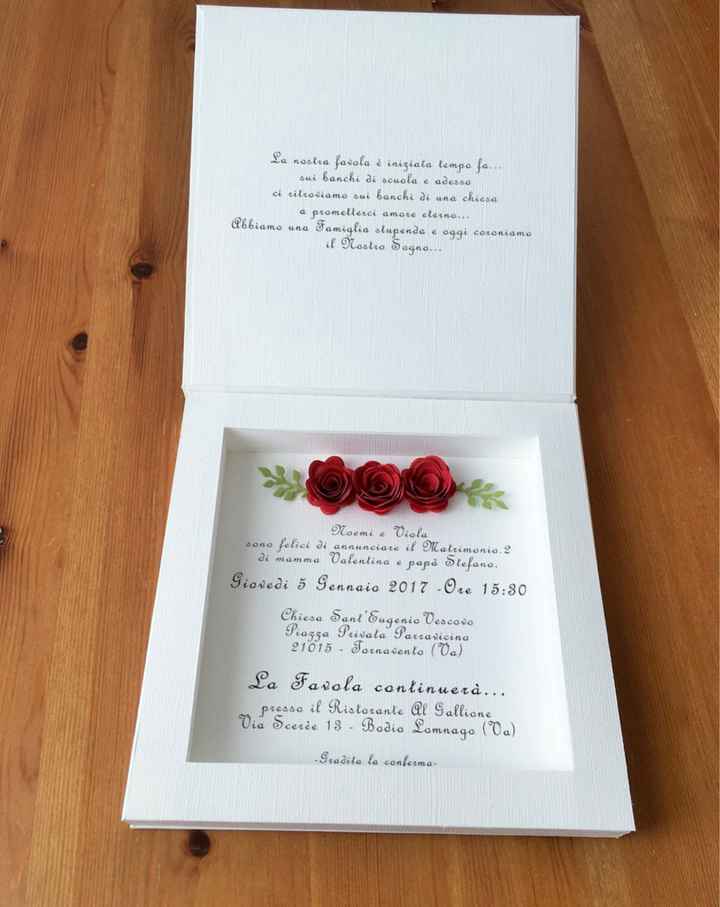 La nostra favola è iniziata tempo fa...
sui banchi di scuola e adesso
ci ritroviamo sui banchi di una chiesa
a prometterci amore eterno...
Abbiamo una Famiglia stupenda e oggi coroniamo
il Nostro Sogno...
Noemi e Viola
sono felici di annunciare il Matrimonio.2
di mamma Valentina e papà Stefano.
Giovedì 5 Gennaio 2017 -Ore 15:30
Chiesa Sant'Eugenio Vescovo
Piazza Privata Parravicino
21015 - Tornavento (Va)
La Favola continuerà...
presso il Ristorante Al Gallione
Via Scerèe 13 - Bodio Lomnago (Va)
-Gradita la conferma-